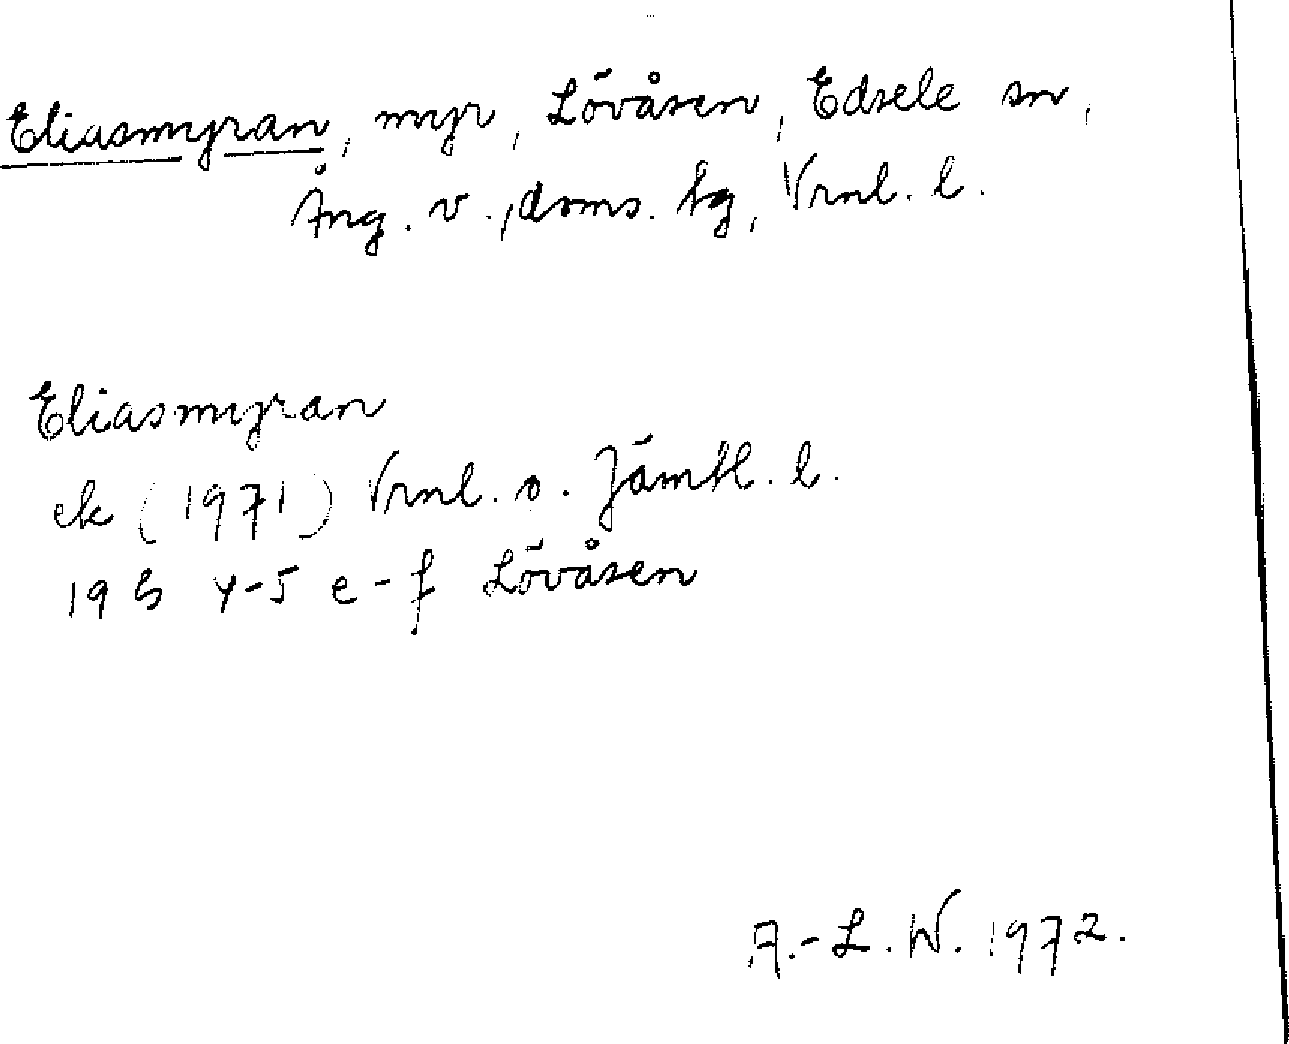 Eliasmyran, myr, Lövåsen, Edsele sn,
Ång. v., doms. tg, Vrnl. l.
Eliasmyran
ek (1971) Vrnl. o. Jämtl. l.
19 G 4-5 e-f Lövåsen
A.-L. W. 1972.